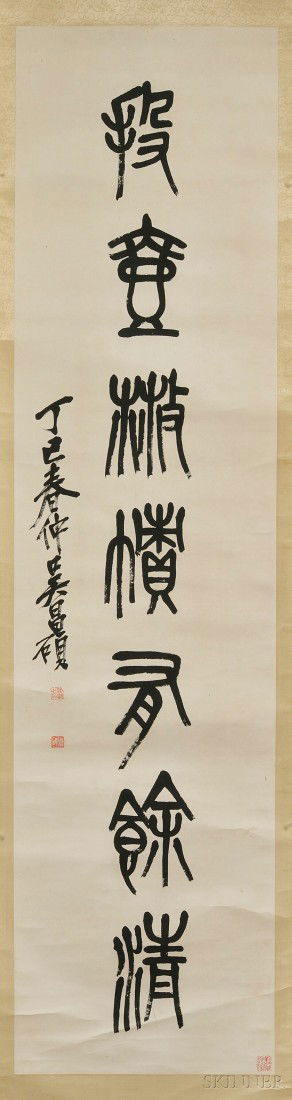 投壺㪔幘有餘清
丁巳春仲吳昌碩
SKINNER